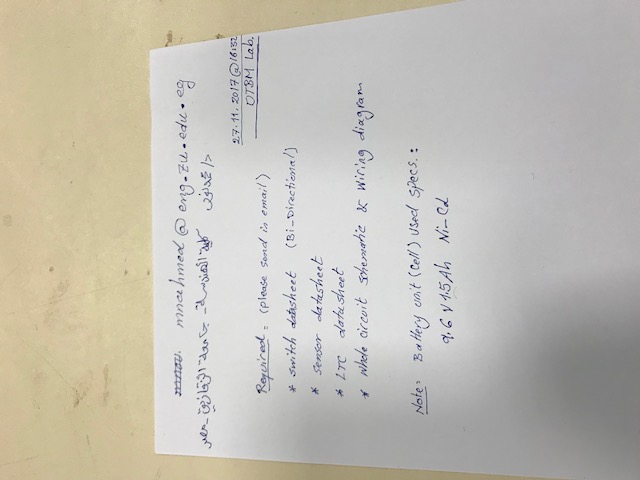 mnahmed@eng.zu.edu.eg
27.11.2017@16:32
DTBM Lab.
Required: (please send in email)
* switch datasheet (Bi-Directional)
* sensor datasheet
* LTC datasheet
* Whole circuit schematic & Wiring diagram
Note: Battery unit (cell) used specs.:
9.6V 1.5Ah Ni-Cd